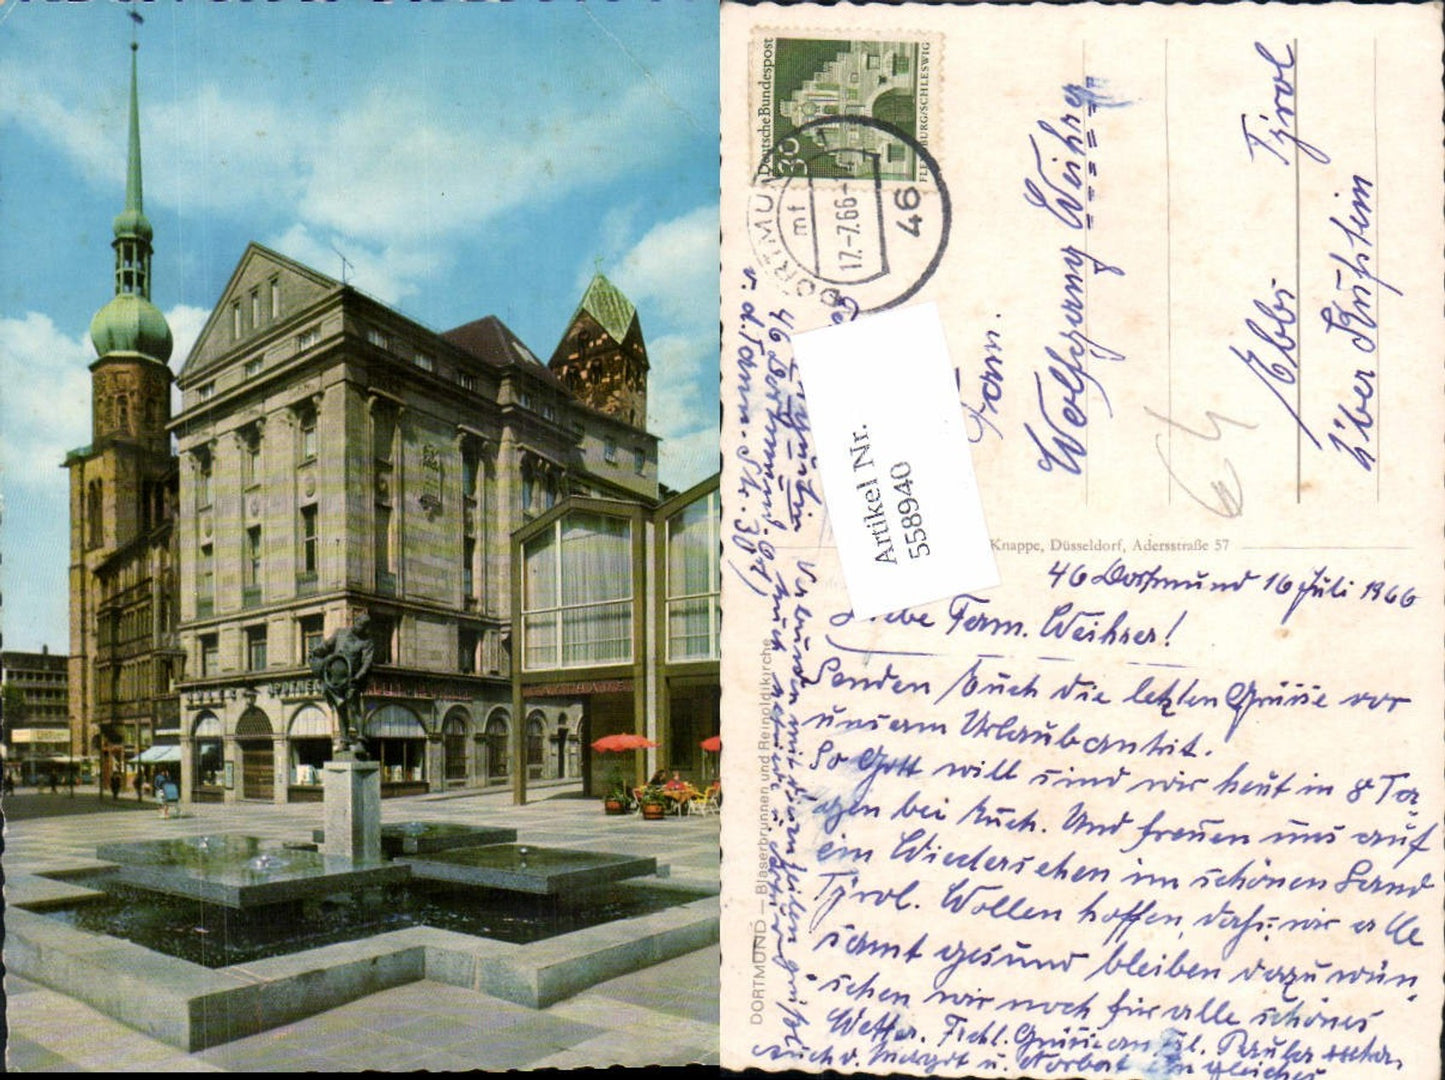 Deutsche Bundespost
30
FLENSBURG/SCHLESWIG
DORTMUND
mf
17.-7.66-
46
Artikel Nr.
558940
Fam.
Wolfgang Weihrer
Ebbs
Tyrol
über Kufstein
64
Knappe, Düsseldorf, Adersstraße 57
DORTMUND — Bläserbrunnen und Reinoldikirche
46 Dortmund 16 Juli 1966
Liebe Fam. Weihrer!
Senden Euch die letzten Grüsse vor
unserm Urlaubantrit.
So Gott will sind wir heut in 8 Ta
gen bei Euch. Und freuen uns auf
ein Wiedersehen im schönen Land
Tyrol. Wollen hoffen, dahs wir alle
samt gesund bleiben dazu wün
schen wir noch für alle schönes
Wetter. Grüsse an Paula
auch v. Margot u. Norbert
46 Dortmund
v. d. Tann-Str. 30